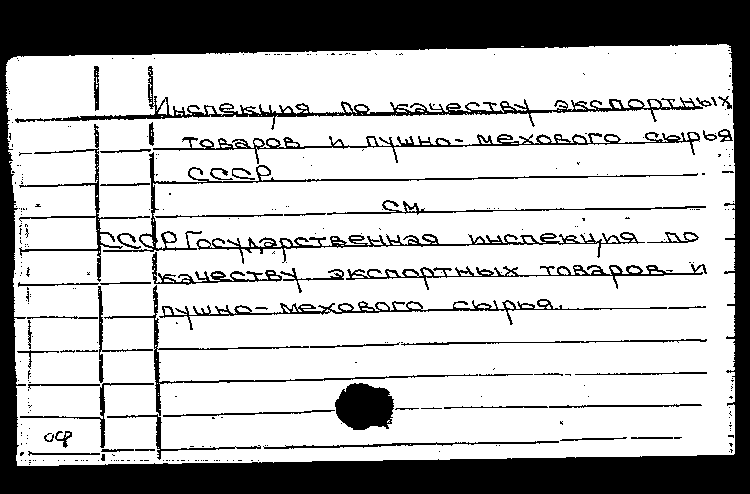 Инспекция по качеству экспортных
товаров и пушно-мехового сырья
СССР
см.
СССР Государственная инспекция по
качеству экспортных товаров и
пушно-мехового сырья.
оср